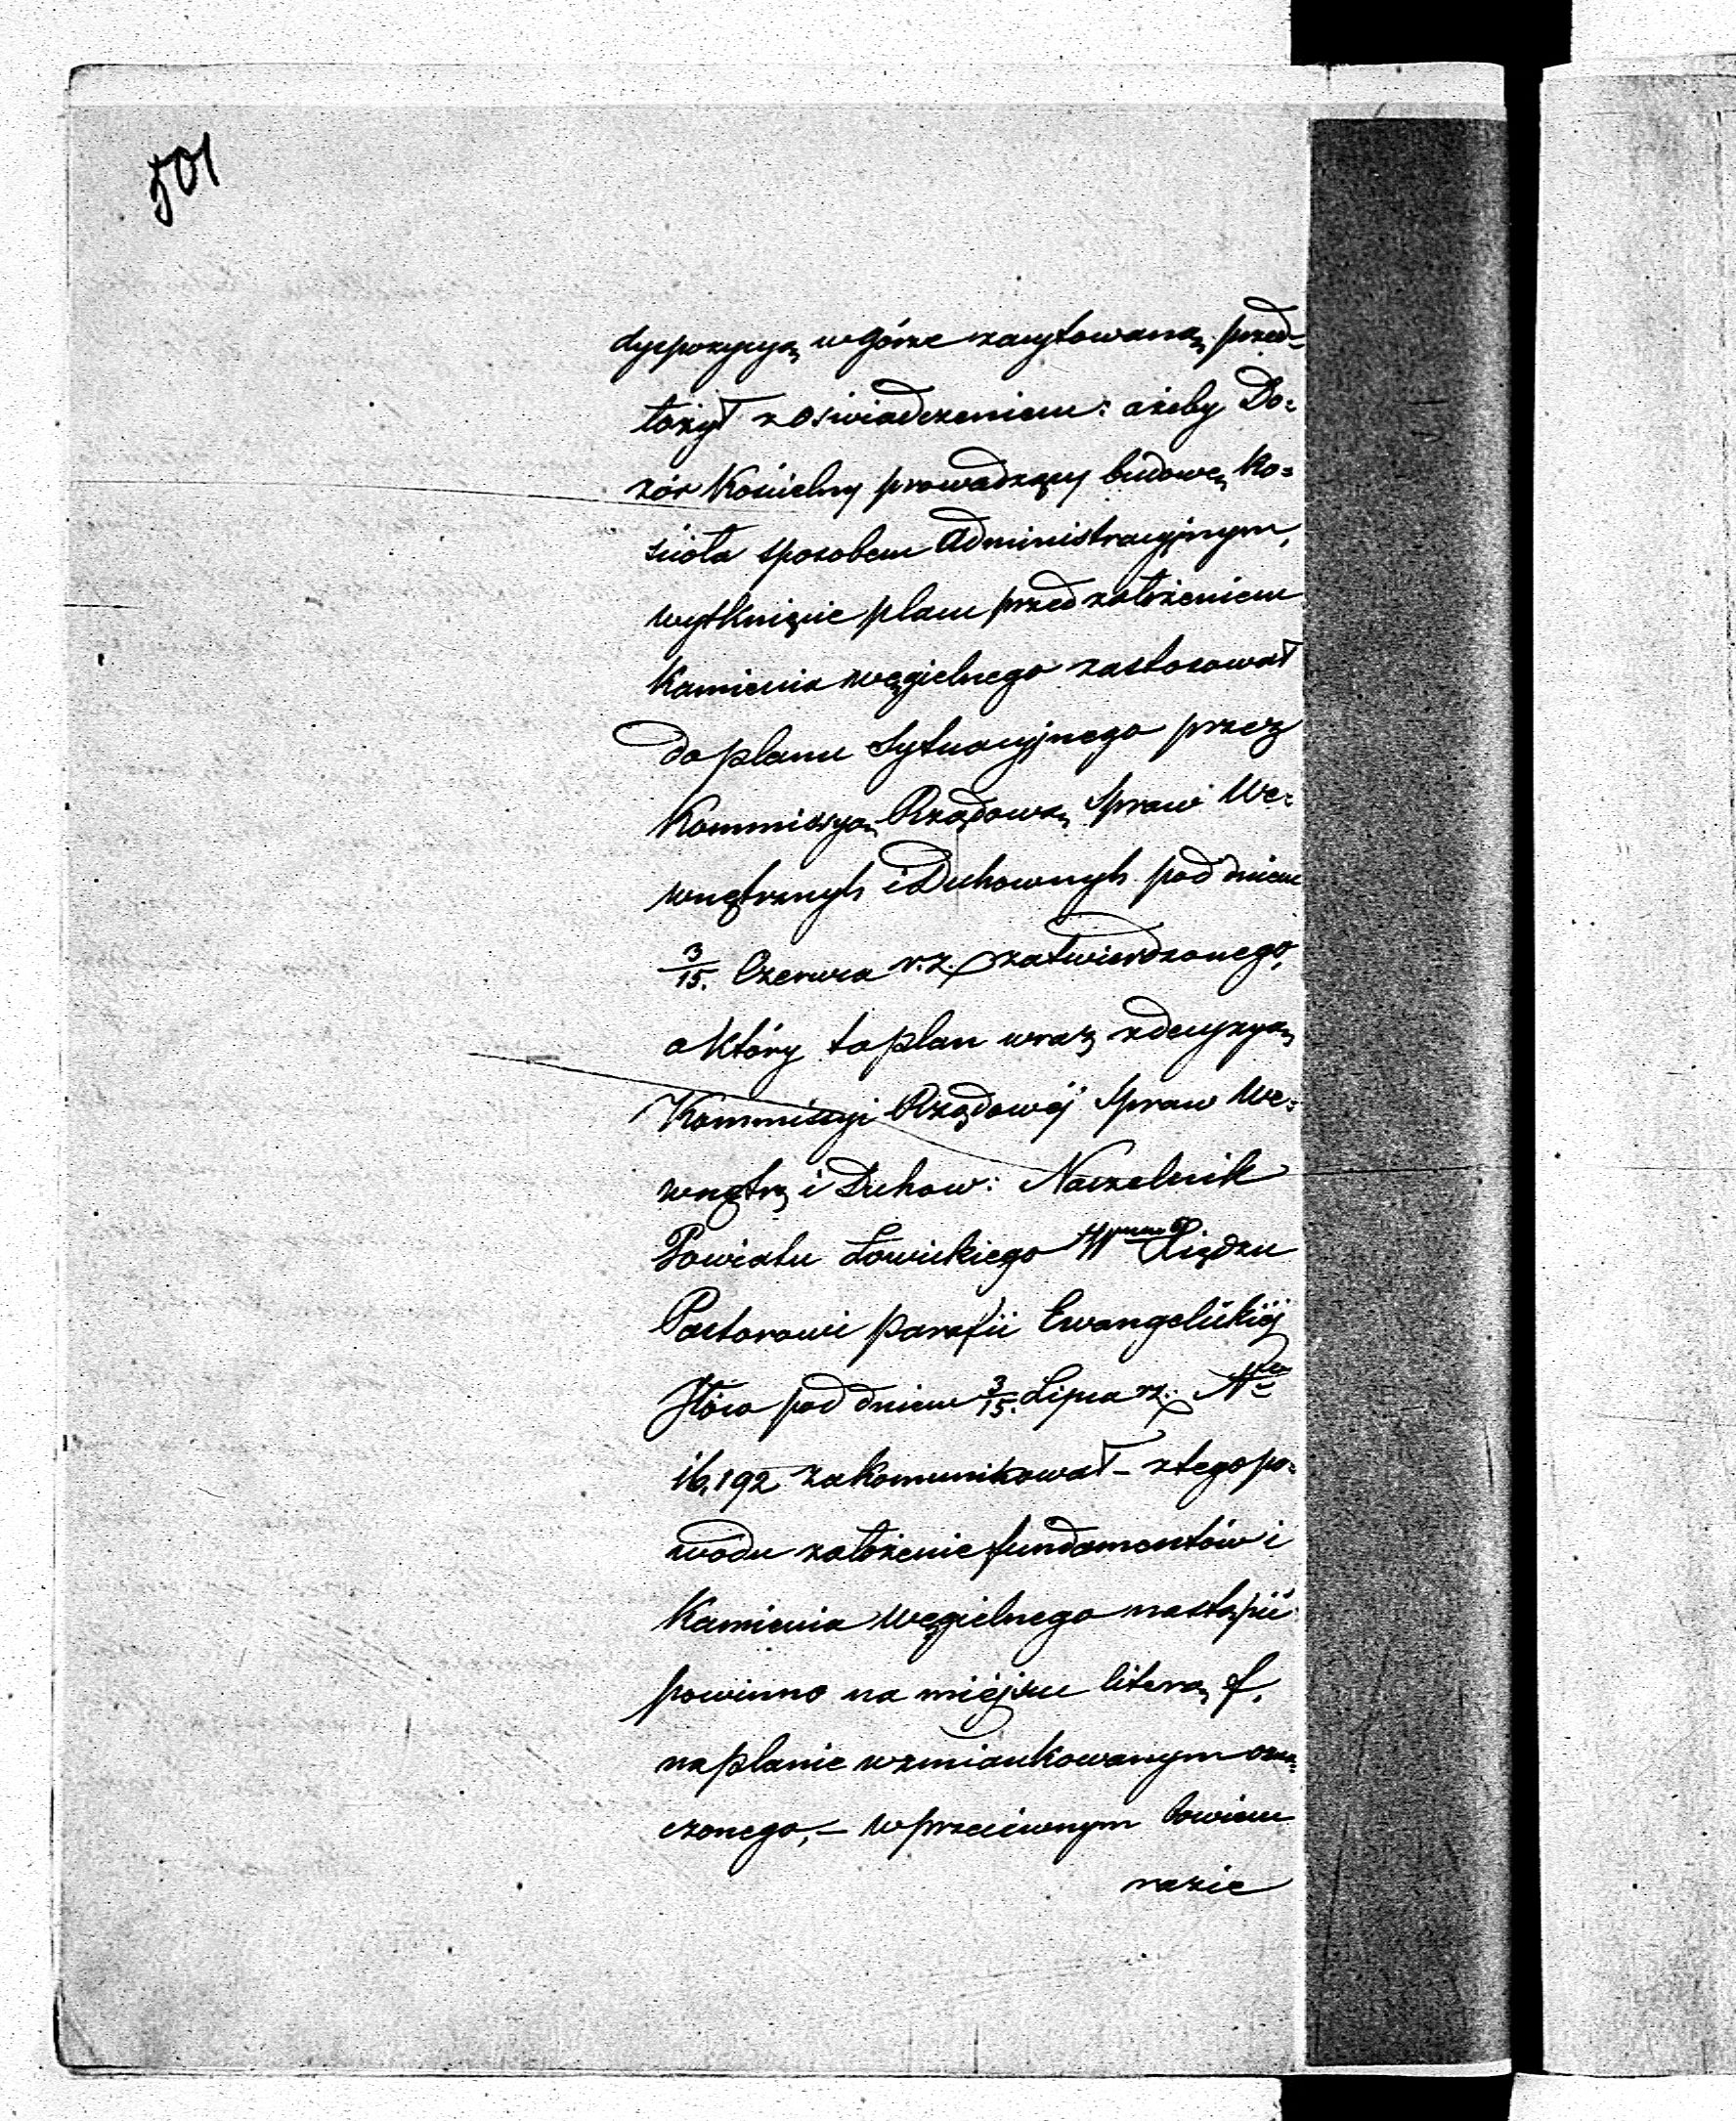 501
dyspozycyą w górze zacytowaną, przed=
łożył z oświadczeniem: ażeby Do=
zór Kościelny prowadzący budowę Ko=
ścioła sposobem Administracyjnym,
wytknięcie placu przed założeniem
Kamienia węgielnego zastosował
do planu Sytuacyjnego przez
Kommissyą Rządową Spraw We=
wnętrznych i Duchownych pod dniem
3/15. Czerwca r. z. zatwierdzonego,
a który to plan wraz z decyzyą
Kommissyi Rządowéj Spraw We=
wnętrz i Duchow: Naczelnik
Powiatu Łowickiego Xiędzu
Pastorowi parafii Ewangelickiéj
Iłów pod dniem 3/15. Lipca r.z. Nrem
16,192 zakomunikował – z tego po=
wodu założenie fundamentów i
Kamienia węgielnego nastąpić
powinno na miéjscu literą f.
na planie wzmiankowanym ozna=
czonego, – w przeciwnym bowiem
razie